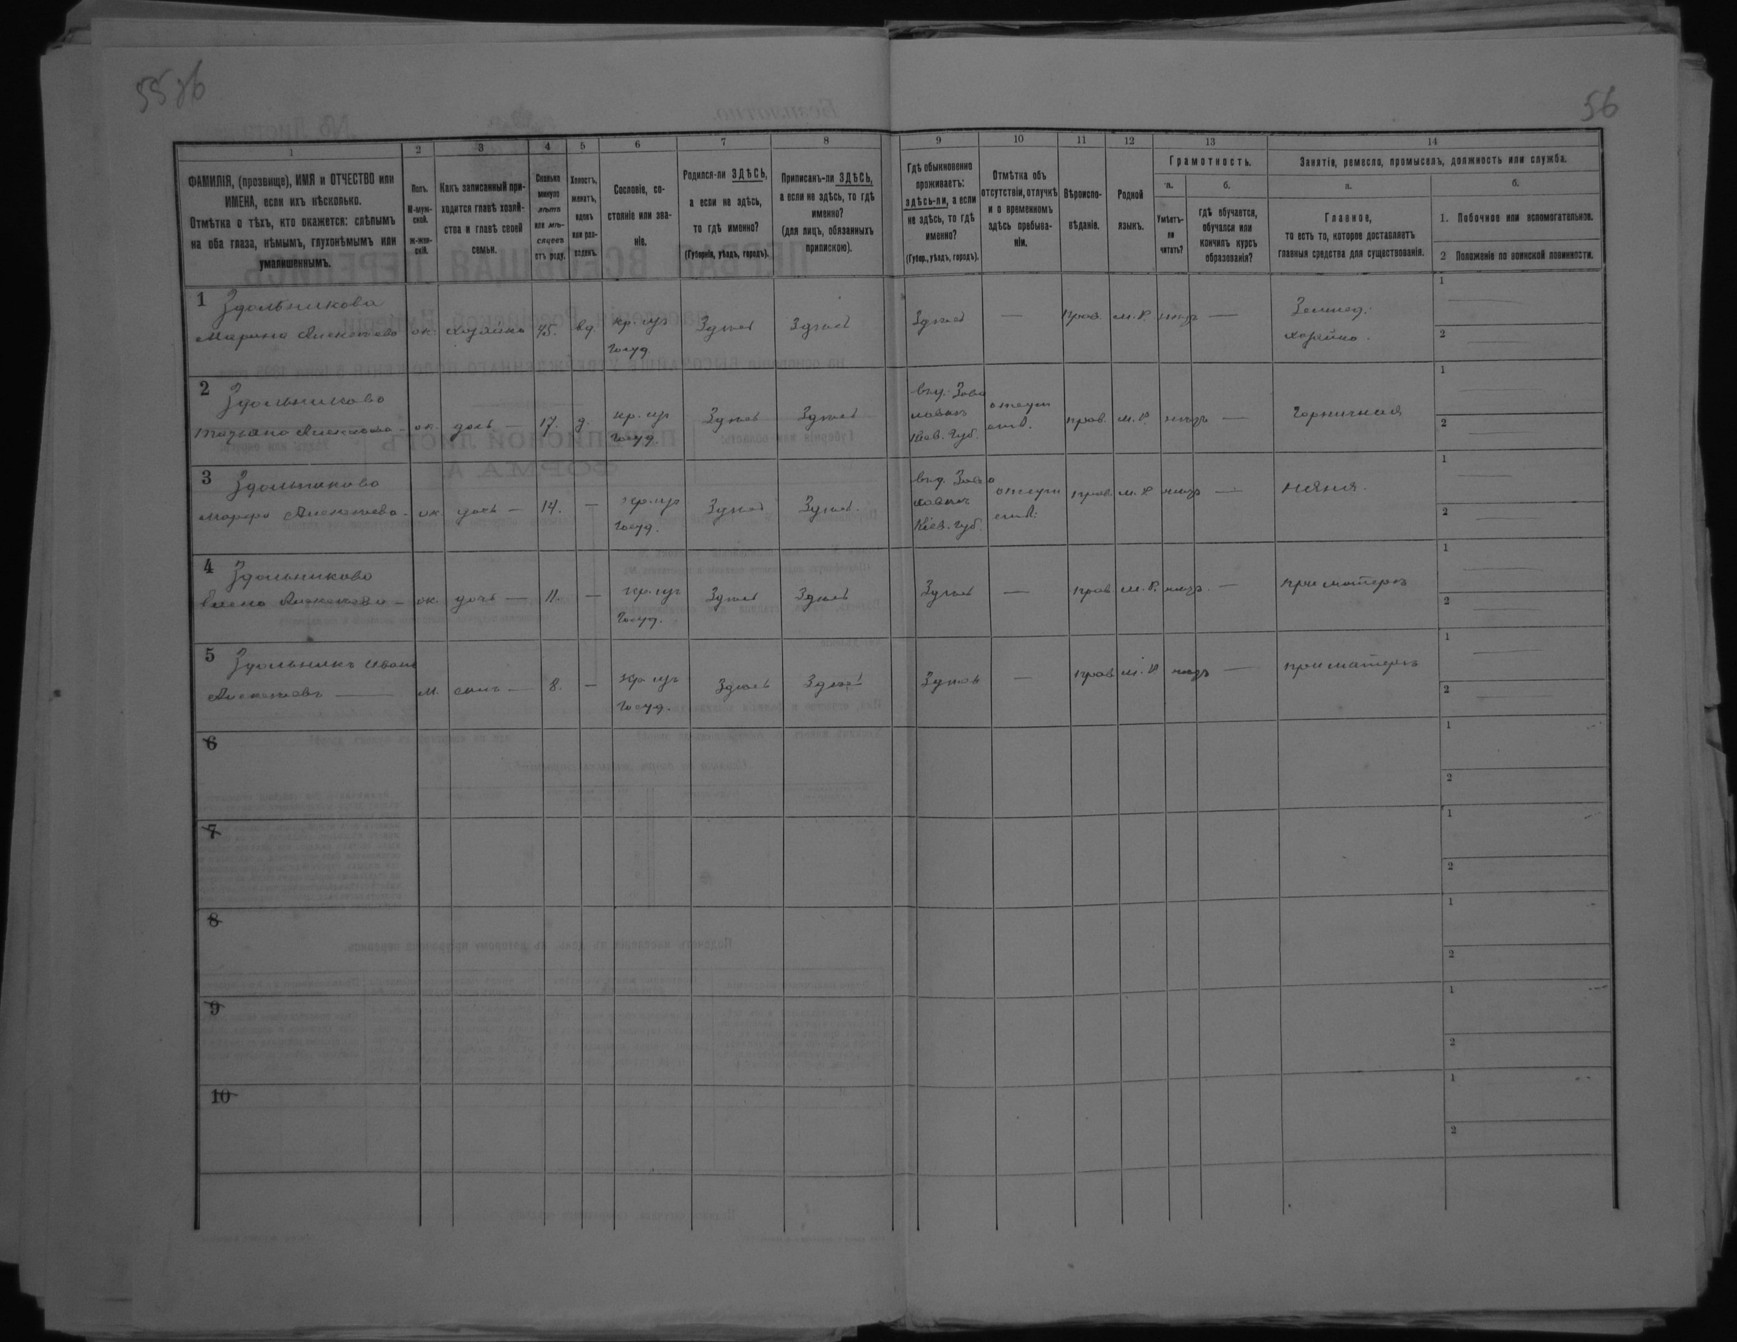 55об
56
1
2
3
4
5
6
7
8
9
10
11
12
13
14
ФАМИЛІЯ, (прозвище), ИМЯ и ОТЧЕСТВО или
ИМЕНА, если ихъ нѣсколько.
Отмѣтка о тѣхъ, кто окажется: слѣпымъ
на оба глаза, нѣмымъ, глухонѣмымъ или
умалишеннымъ.
Полъ.
М-муж-
ской.
Ж-жен-
скій.
Какъ записанный при-
ходится главѣ хозяй-
ства и главѣ своей
семьи.
Сколько
минуло
лѣтъ
или мѣ-
сяцевъ
отъ роду.
Холостъ,
женатъ,
вдовъ
или раз-
веденъ.
Сословіе, со-
стояніе или зва-
ніе.
Родился-ли ЗДѢСЬ,
а если не здѣсь,
то гдѣ именно?
(Губернія, уѣздъ, городъ).
Приписанъ-ли ЗДѢСЬ,
а если не здѣсь, то гдѣ
именно?
(для лицъ, обязанныхъ
припискою).
Гдѣ обыкновенно
проживаетъ:
здѣсь-ли, а если
не здѣсь, то гдѣ
именно?
(Губер., уѣздъ, городъ).
Отмѣтка объ
отсутствіи, отлучкѣ
и о временномъ
здѣсь пребыва-
ніи.
Вѣроиспо-
вѣданіе.
Родной
языкъ.
Грамотность.
а.
б.
Умѣетъ-
ли
читать?
гдѣ обучается,
обучался или
кончилъ курсъ
образованія?
Занятіе, ремесло, промыселъ, должность или служба.
а.
б.
Главное,
то есть то, которое доставляетъ
главныя средства для существованія.
1. Побочное или вспомогательное.
2 Положеніе по воинской повинности.
1 Здольникова
Марина Алексѣева ж. хозяйка 45. вд. кр. изъ Здѣсь Здѣсь Здѣсь — прав. м.р. нѣтъ — Землед.
госуд. хозяйка.
1
2
2 Здольникова
Татьяна Алексѣева - ж. дочь — 17. д. кр. изъ Здѣсь Здѣсь прав. м.р. нѣтъ — Горничная
госуд. Кіев. губ.
1
2
3 Здольникова
Алексѣева - ж. дочь — 14. — кр. изъ Здѣсь Здѣсь прав. м.р. нѣтъ — няня.
госуд. Кіев. губ.
1
2
4 Здольникова
Елена Алексѣева — ж. дочь — 11. — кр. изъ Здѣсь Здѣсь Здѣсь — прав. м.р. нѣтъ. — при матери
госуд.
1
2
5 Здольникъ Иванъ
Алексѣевъ — м. сынъ — 8. — кр. изъ Здѣсь Здѣсь Здѣсь — прав. м.р. нѣтъ — при матери
госуд.
1
2
6
1
2
7
1
2
8
1
2
9
1
2
10
1
2